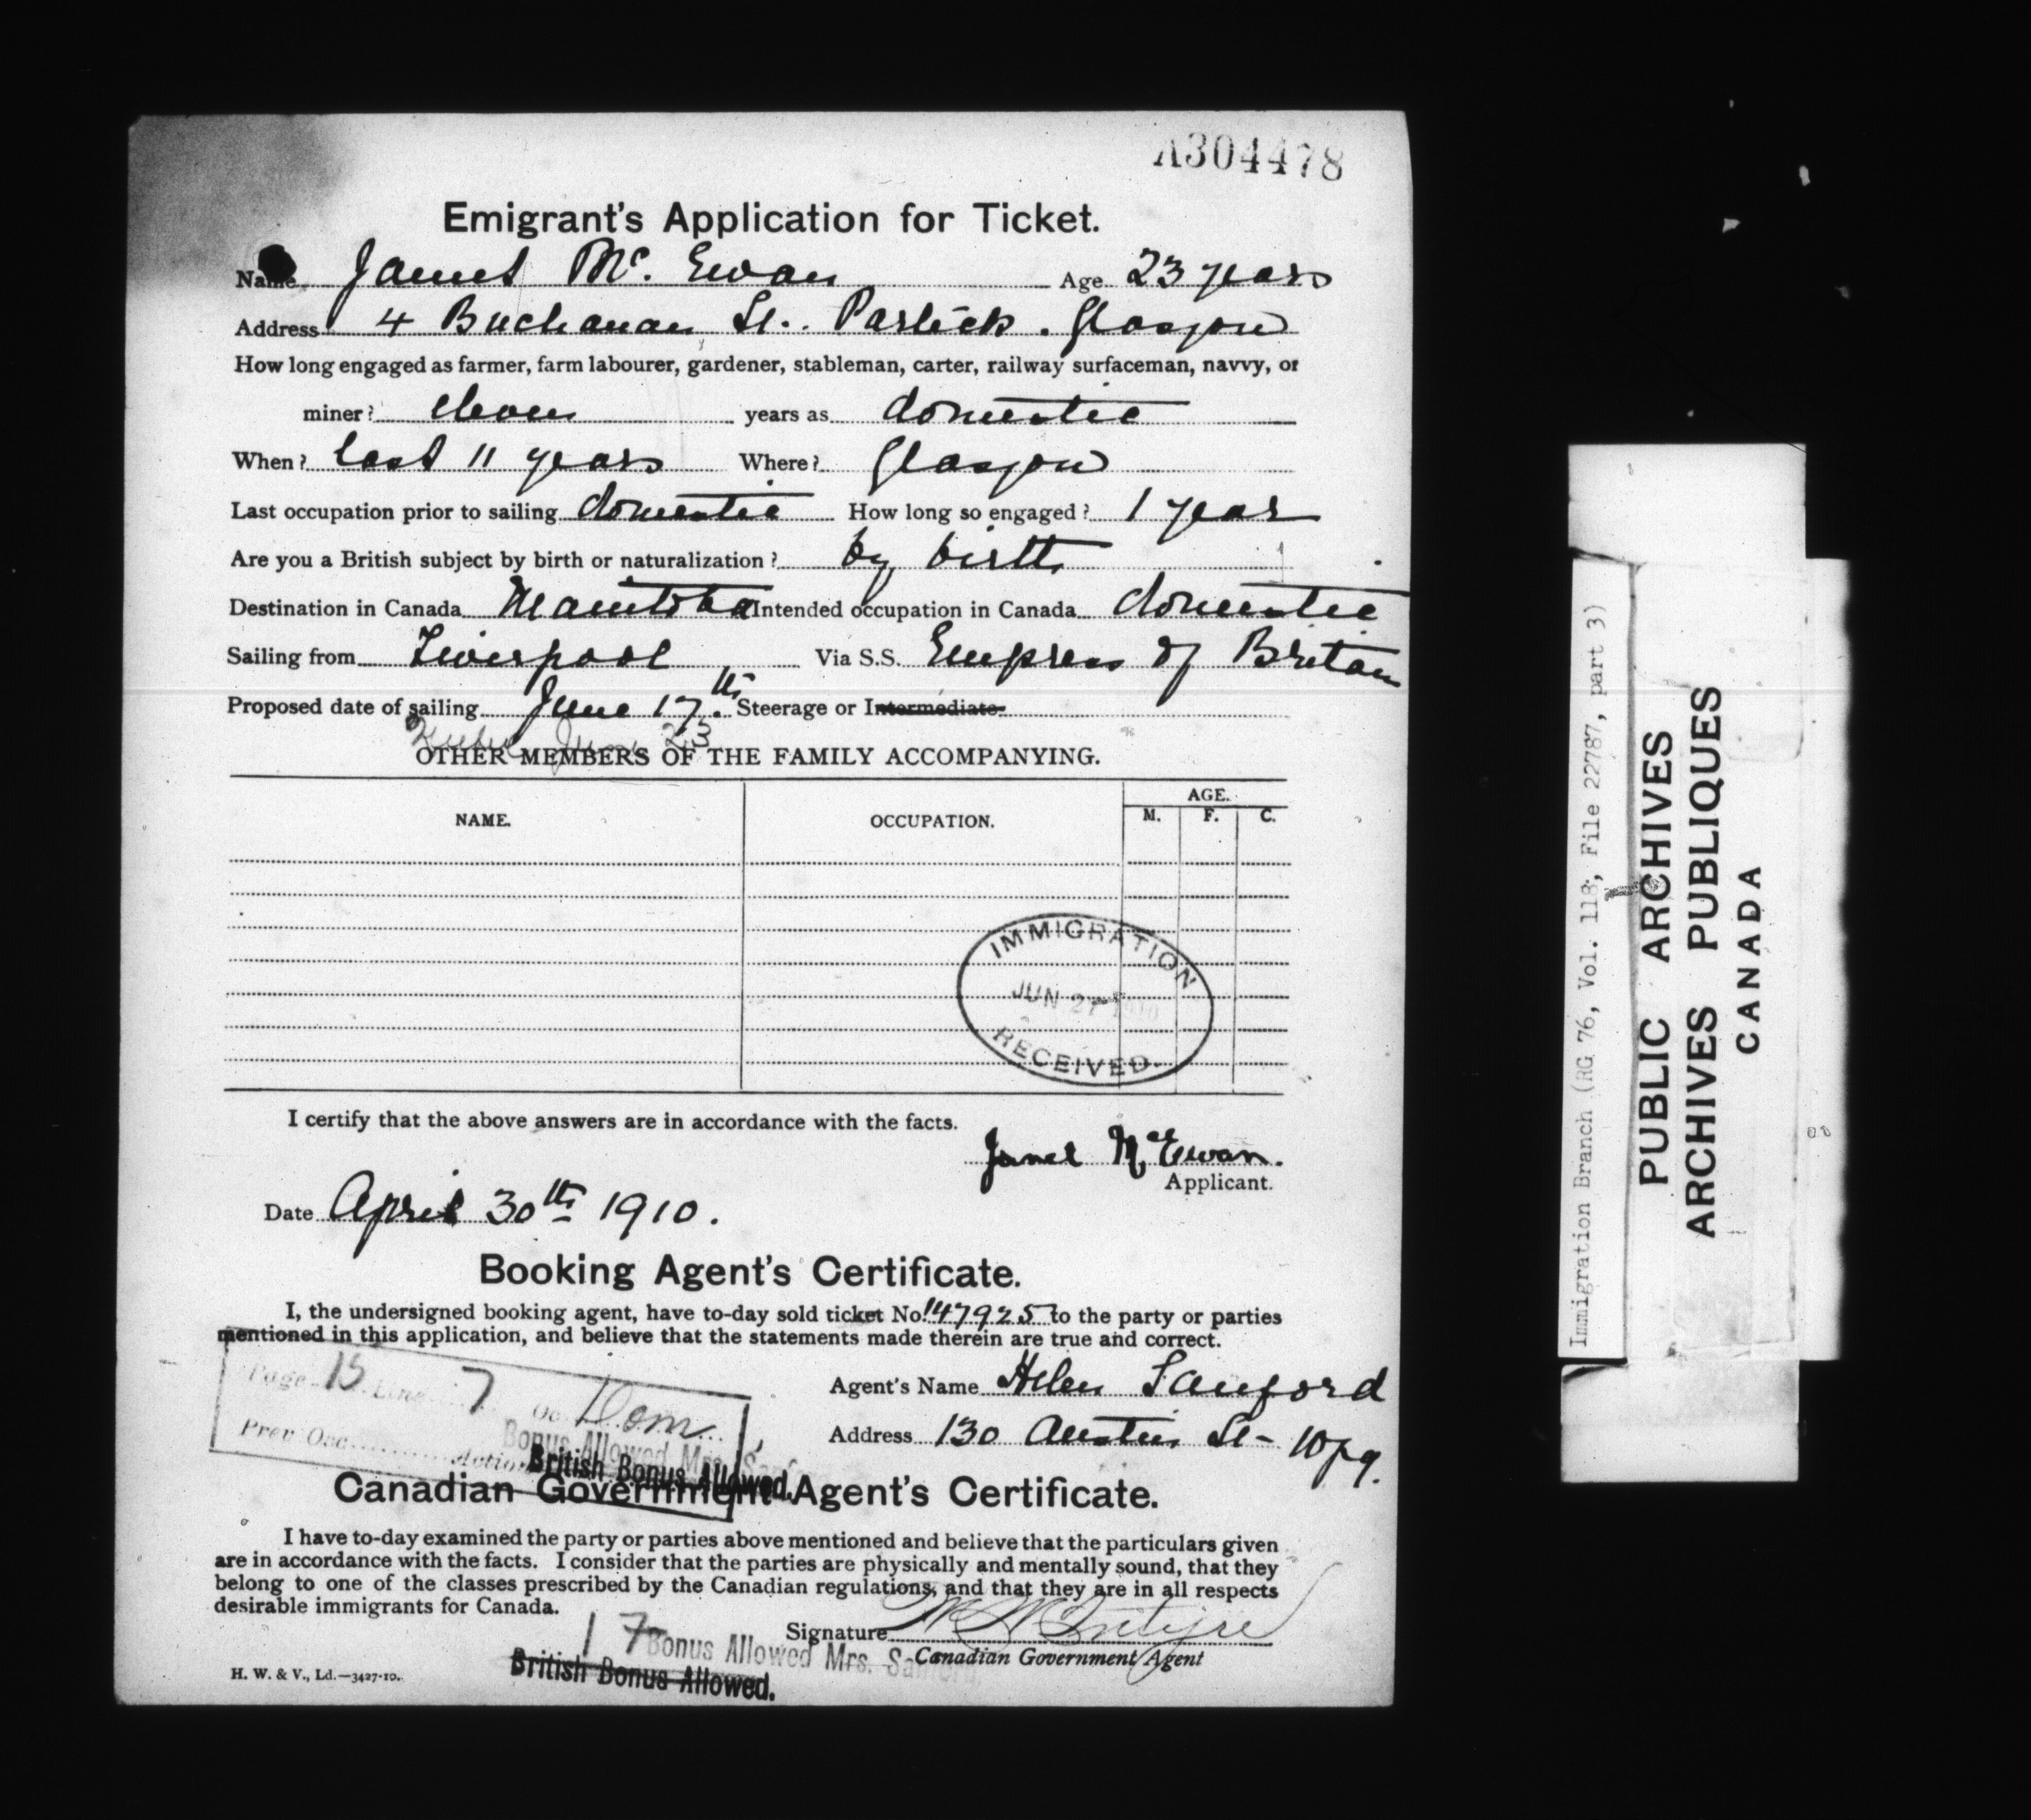 A304478
Emigrant's Application for Ticket.
Name Janet Mc. Ewan Age 23 years
Address 4 Buchanan St. Partick. Glasgow
How long engaged as farmer, farm labourer, gardener, stableman, carter, railway surfaceman, navvy, or
miner? eleven years as domestic
When? last 11 years Where? Glasgow
Last occupation prior to sailing domestic How long so engaged? 1 year
Are you a British subject by birth or naturalization? by birth
Destination in Canada Manitoba Intended occupation in Canada domestic
Sailing from Liverpool Via S.S. Empress of Britain
Proposed date of sailing June 17th. Steerage or Intermediate
Quebec June 23
OTHER MEMBERS OF THE FAMILY ACCOMPANYING.
NAME. OCCUPATION. AGE.
M. F. C.
IMMIGRATION
JUN 27 1910
RECEIVED.
I certify that the above answers are in accordance with the facts.
Janet McEwan.
Applicant.
Date April 30th 1910.
Booking Agent's Certificate.
I, the undersigned booking agent, have to-day sold ticket No. 147925 to the party or parties
mentioned in this application, and believe that the statements made therein are true and correct.
Page 15 Line 7 Oc. Dom
Prev Occ. Action
Agent's Name Helen Sanford
Address 130 Austin St- Wpg.
Bonus Allowed Mrs. Sanford
British Bonus Allowed.
Canadian Government Agent's Certificate.
I have to-day examined the party or parties above mentioned and believe that the particulars given
are in accordance with the facts. I consider that the parties are physically and mentally sound, that they
belong to one of the classes prescribed by the Canadian regulations, and that they are in all respects
desirable immigrants for Canada.
17
Signature McIntyre
Canadian Government Agent
Bonus Allowed Mrs. Sanford.
British Bonus Allowed.
H. W. & V., Ld.—3427-10.
Immigration Branch (RG 76, Vol. 118, File 22787, part 3)
PUBLIC ARCHIVES
ARCHIVES PUBLIQUES
CANADA